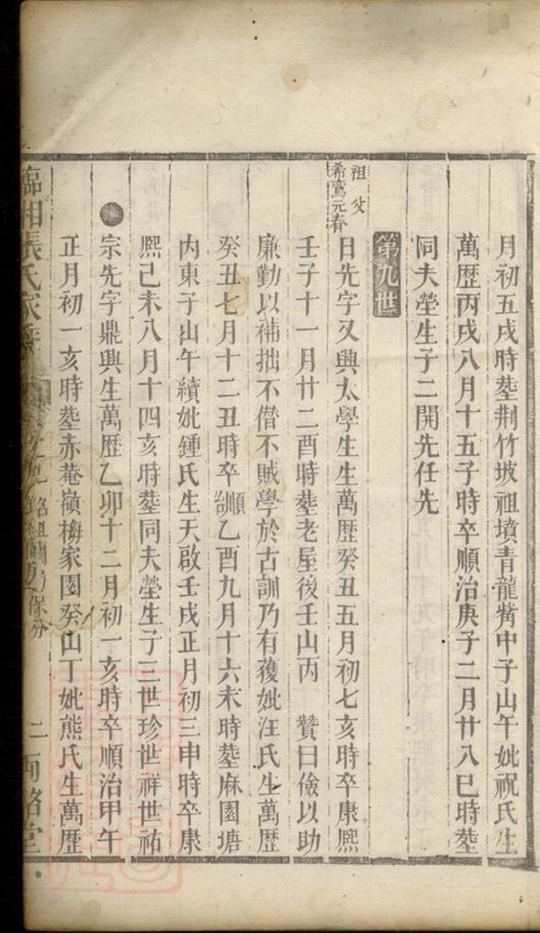 月初五戌時塟荆竹坡祖墳青龍觜中子山午妣祝氏生
萬歷丙戌八月十五子時卒順治庚子二月廿八巳時塟
同夫塋生子二開先任先
第九世
祖父
希鸞元春
日先字又興太學生生萬歷癸丑五月初七亥時卒康熙
壬子十一月廿二酉時塟老屋後壬山丙 贊曰儉以助
廉勤以補拙不僭不賊學於古訓乃有獲妣汪氏生萬歷
癸丑七月十二丑時卒順乙酉九月十六未時塟麻園塘
内東子山午續妣鍾氏生天啟壬戌正月初三申時卒康
熙己未八月十四亥時塟同夫塋生子三世珍世祥世祐
宗先字鼎興生萬歷乙卯十二月初一亥時卒順治甲午
正月初一亥時塟赤菴嶺梅家園癸山丁妣熊氏生萬歷
臨湘張氏家
保分
二